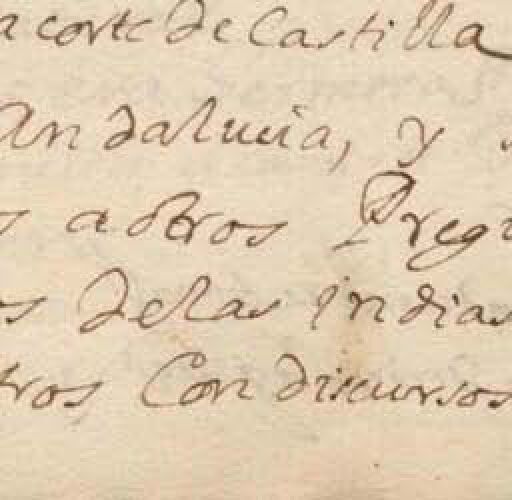 a corte de Castilla
Andalucia, y
s a otros Preg
os delas indias
tros Con discursos